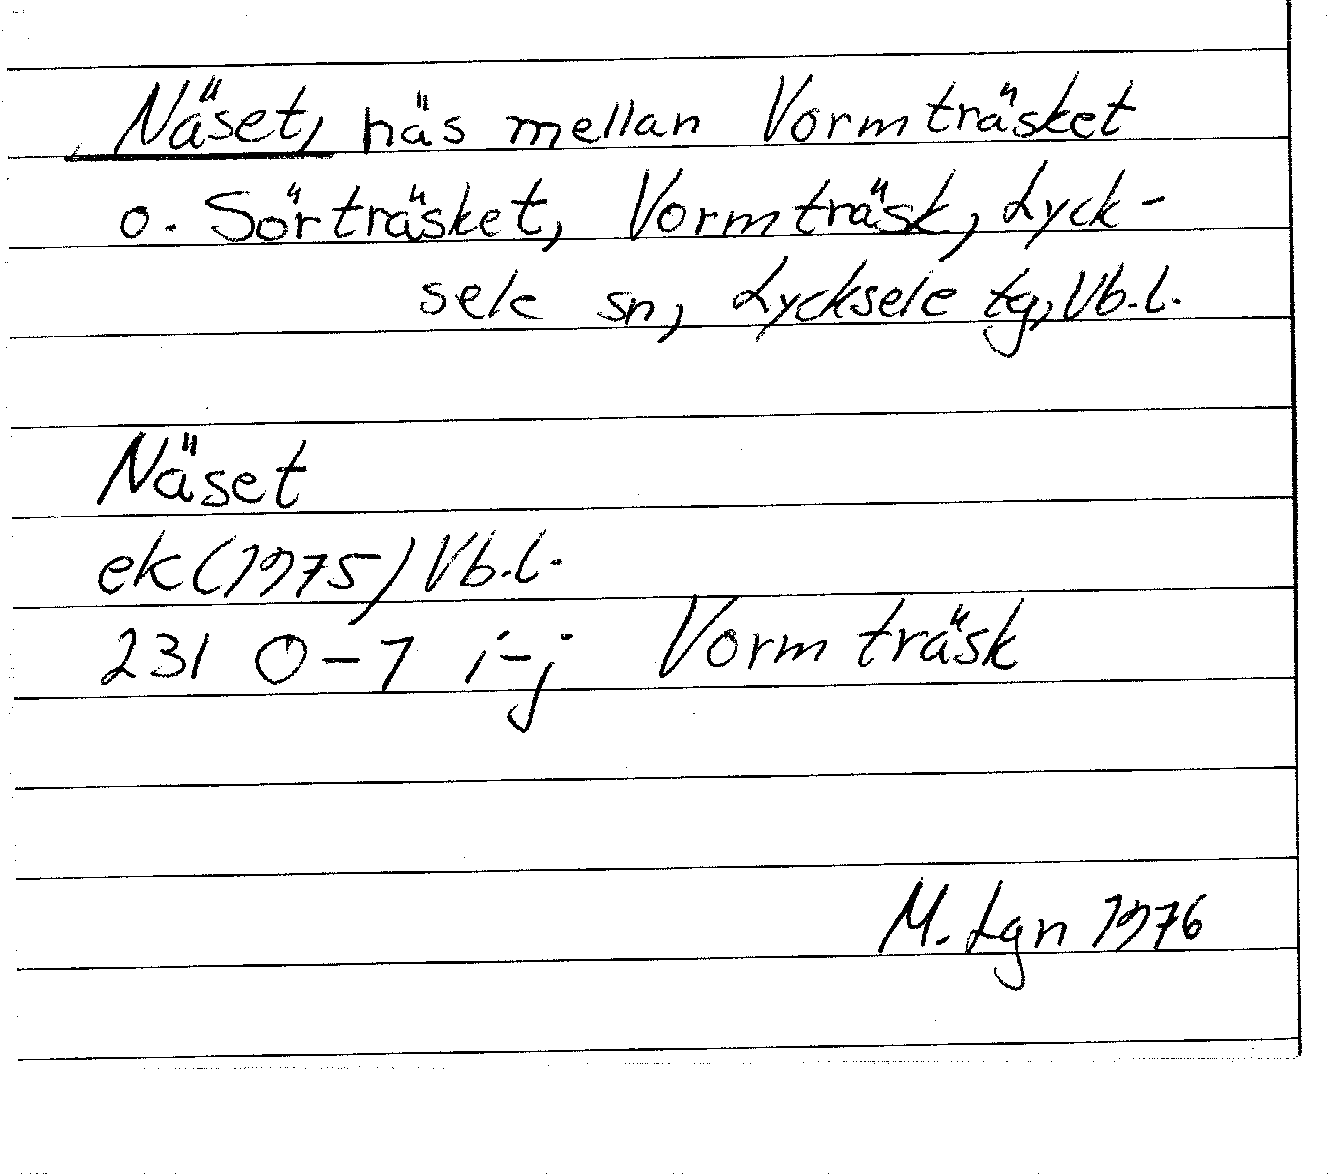 Näset, näs mellan Vormträsket
o. Sörträsket, Vormträsk, Lyck-
sele sn, Lycksele tg, Vb.l.
Näset
ek (1975) Vb.l.
231 0-1 i-j Vormträsk
M. Lgn 1976